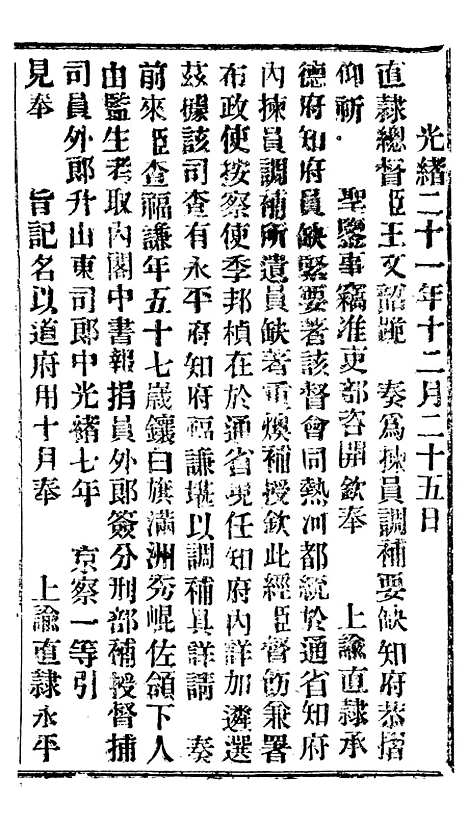 光緒二十一年十二月二十五日
直隸總督臣王文韶跪　奏爲揀員調補要缺知府恭摺
仰祈　聖鑒事竊准吏部咨開欽奉　上諭直隸承
德府知府員缺緊要著該督會同熱河都統於通省知府
內揀員調補所遺員缺著重煥補授欽此經臣督飭兼署
布政使按察使季邦楨在於通省現任知府內詳加遴選
茲據該司查有永平府知府福謙堪以調補具詳請　奏
前來臣查福謙年五十七歲鑲白旗滿洲秀崐佐領下人
由監生考取內閣中書報捐員外郎簽分刑部補授督捕
司員外郎升山東司郎中光緒七年　京察一等引
見奉　旨記名以道府用十月奉　上諭直隸永平